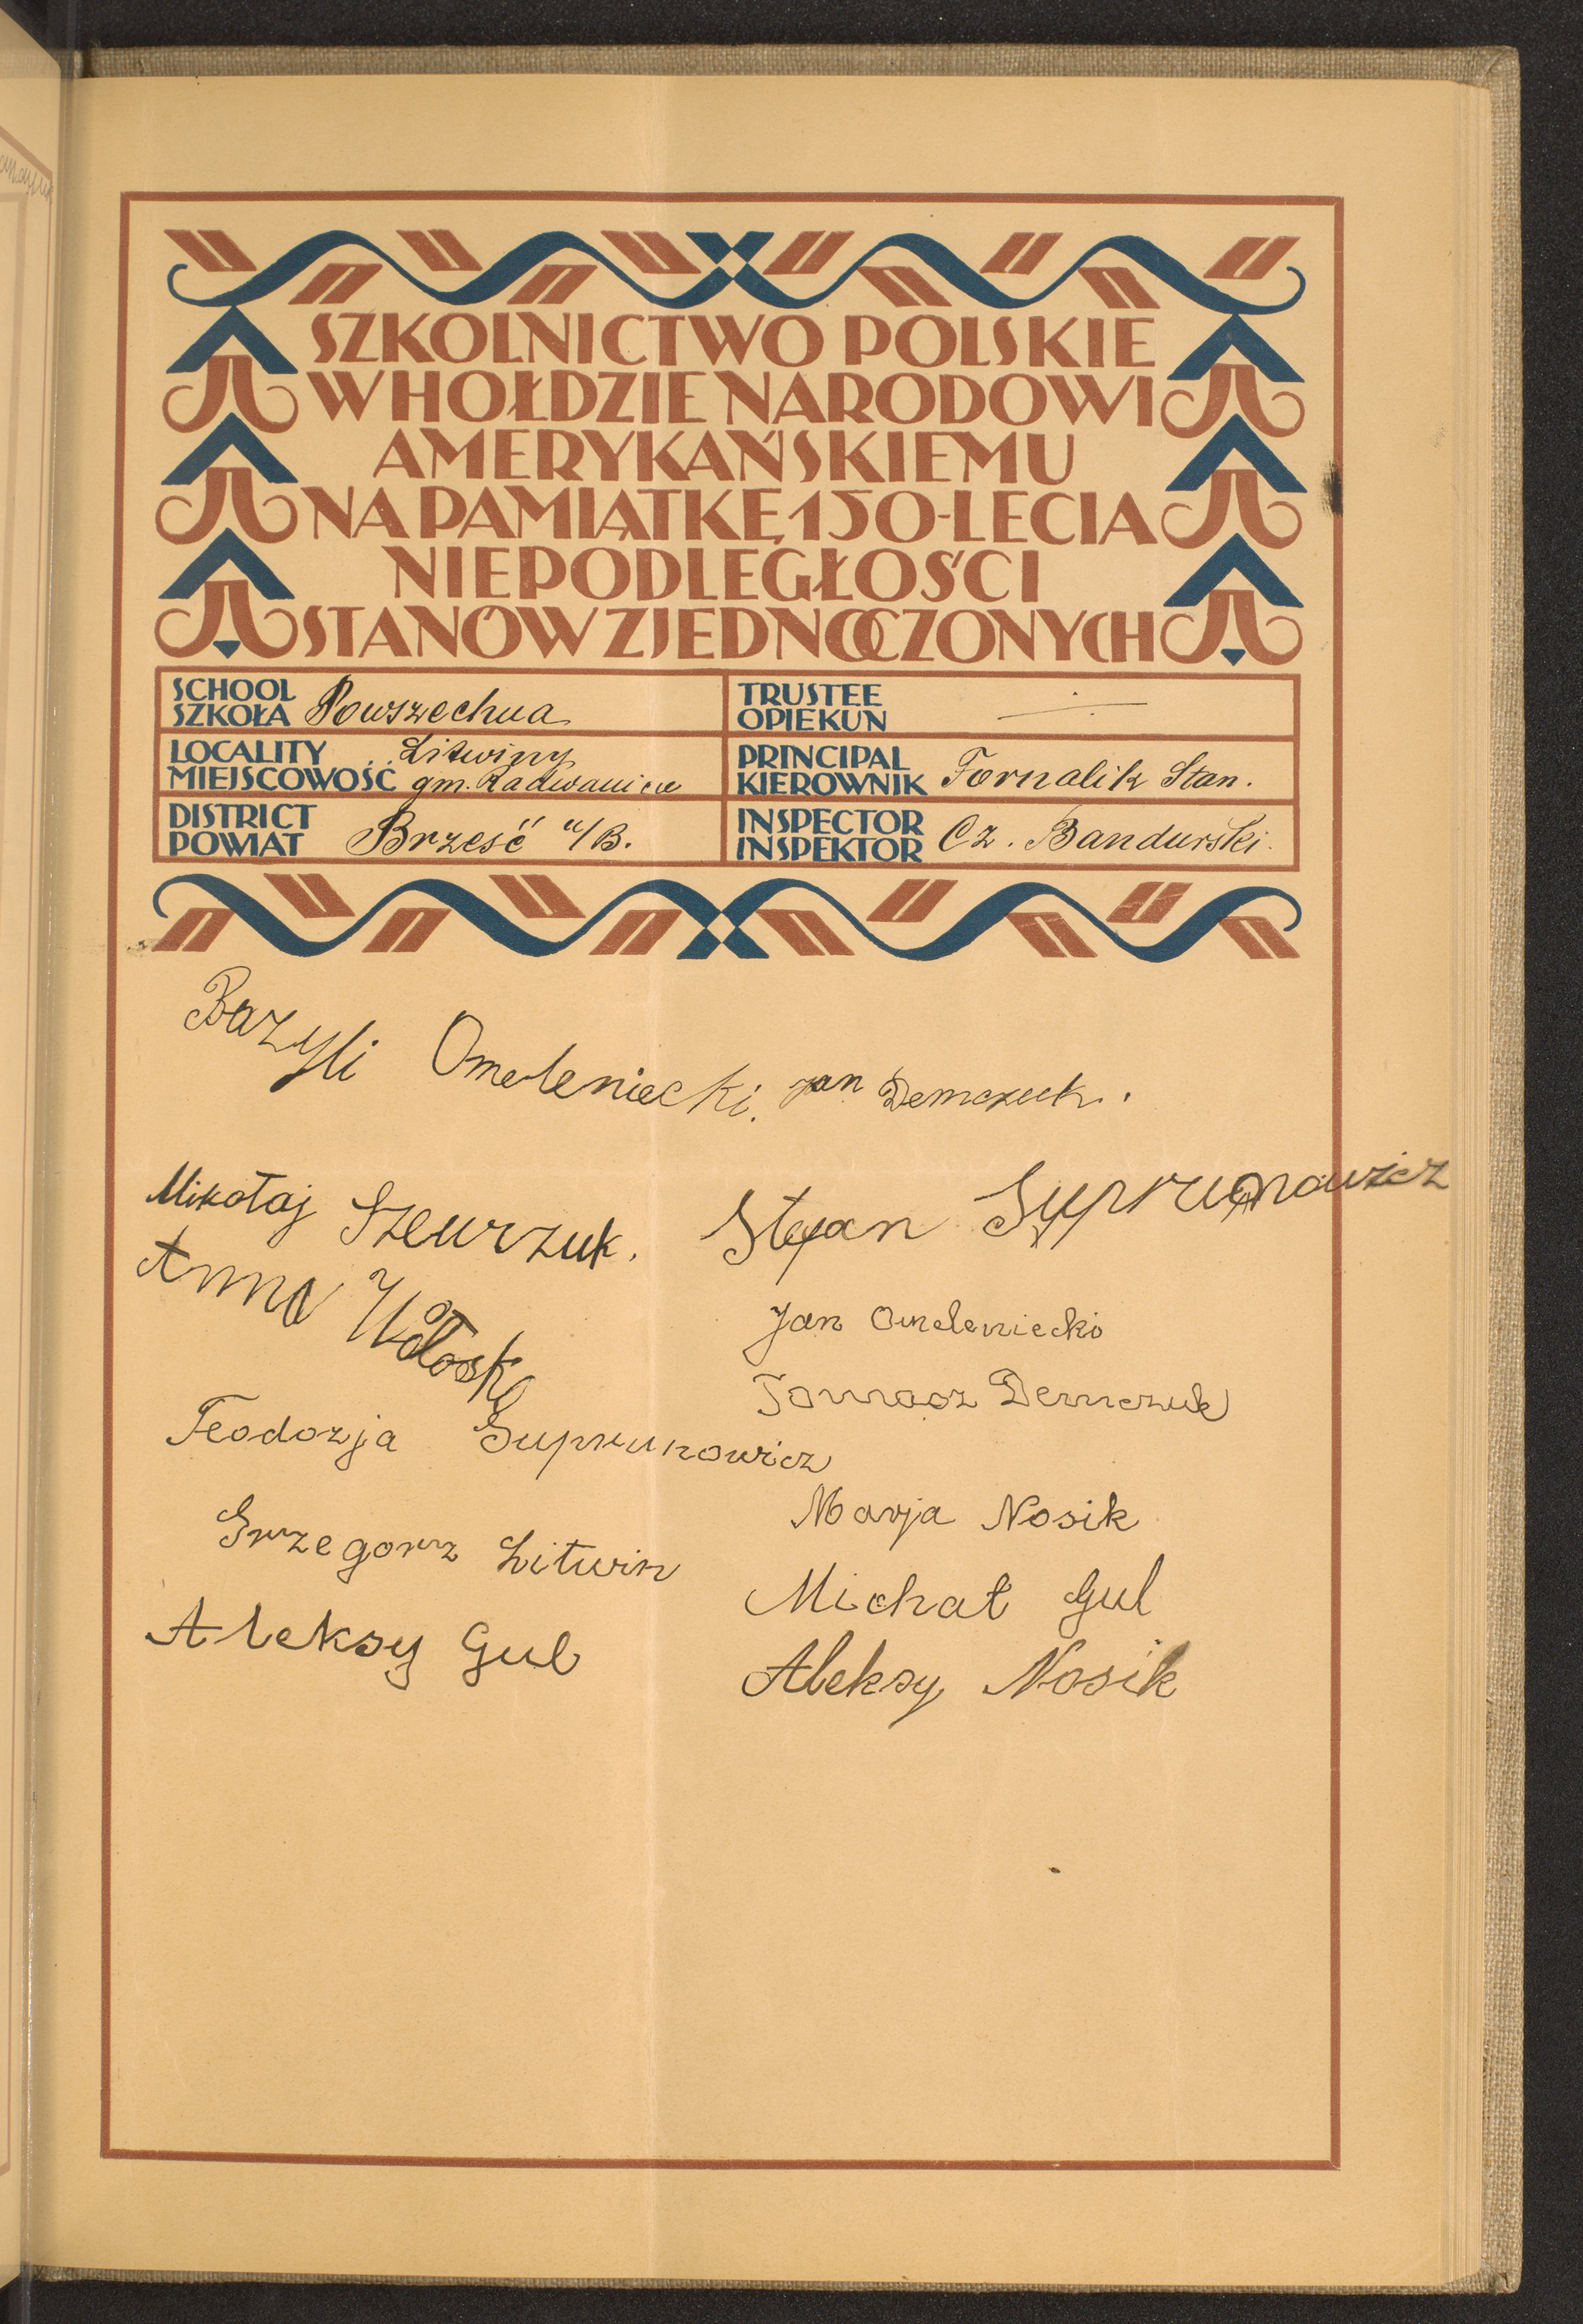 SZKOLNICTWO POLSKIE
W HOŁDZIE NARODOWI
AMERYKAŃSKIEMU
NA PAMIĄTKĘ 150-LECIA
NIEPODLEGŁOŚCI
STANÓW ZJEDNOCZONYCH
SCHOOL
SZKOŁA Powszechna
TRUSTEE
OPIEKUN
LOCALITY Litwiny
MIEJSCOWOŚĆ gm. Radwanicze
PRINCIPAL
KIEROWNIK Fornalik Stan.
DISTRICT
POWIAT Brześć n/B.
INSPECTOR
INSPEKTOR Cz. Bandurski.
Bazyli Omeleniecki. Jan Demczuk.
Mikołaj Szewrzuk. Stefan Suprunowicz
Anna
Jan Omeleniecki
Tomasz Demczuk
Teodozja Suprunowicz
Marja Nosik
Grzegorz Litwin
Michał Gul
Aleksy Gul
Aleksy Nosik